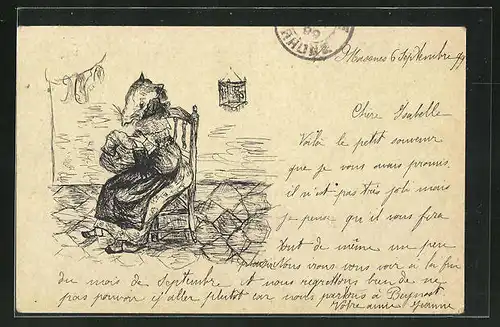 6 Septembre 99
Chère Isabelle
Voilà le petit souvenir
que je vous avais promis
il n'est pas très joli mais
je pense qu'il vous fera
tout de même un peu
plaisir. Nous irons vous voir à la fin
du mois de Septembre et nous regrettons bien de ne
pas pouvoir y aller plutôt car nous partons à
Votre amie Jeanne